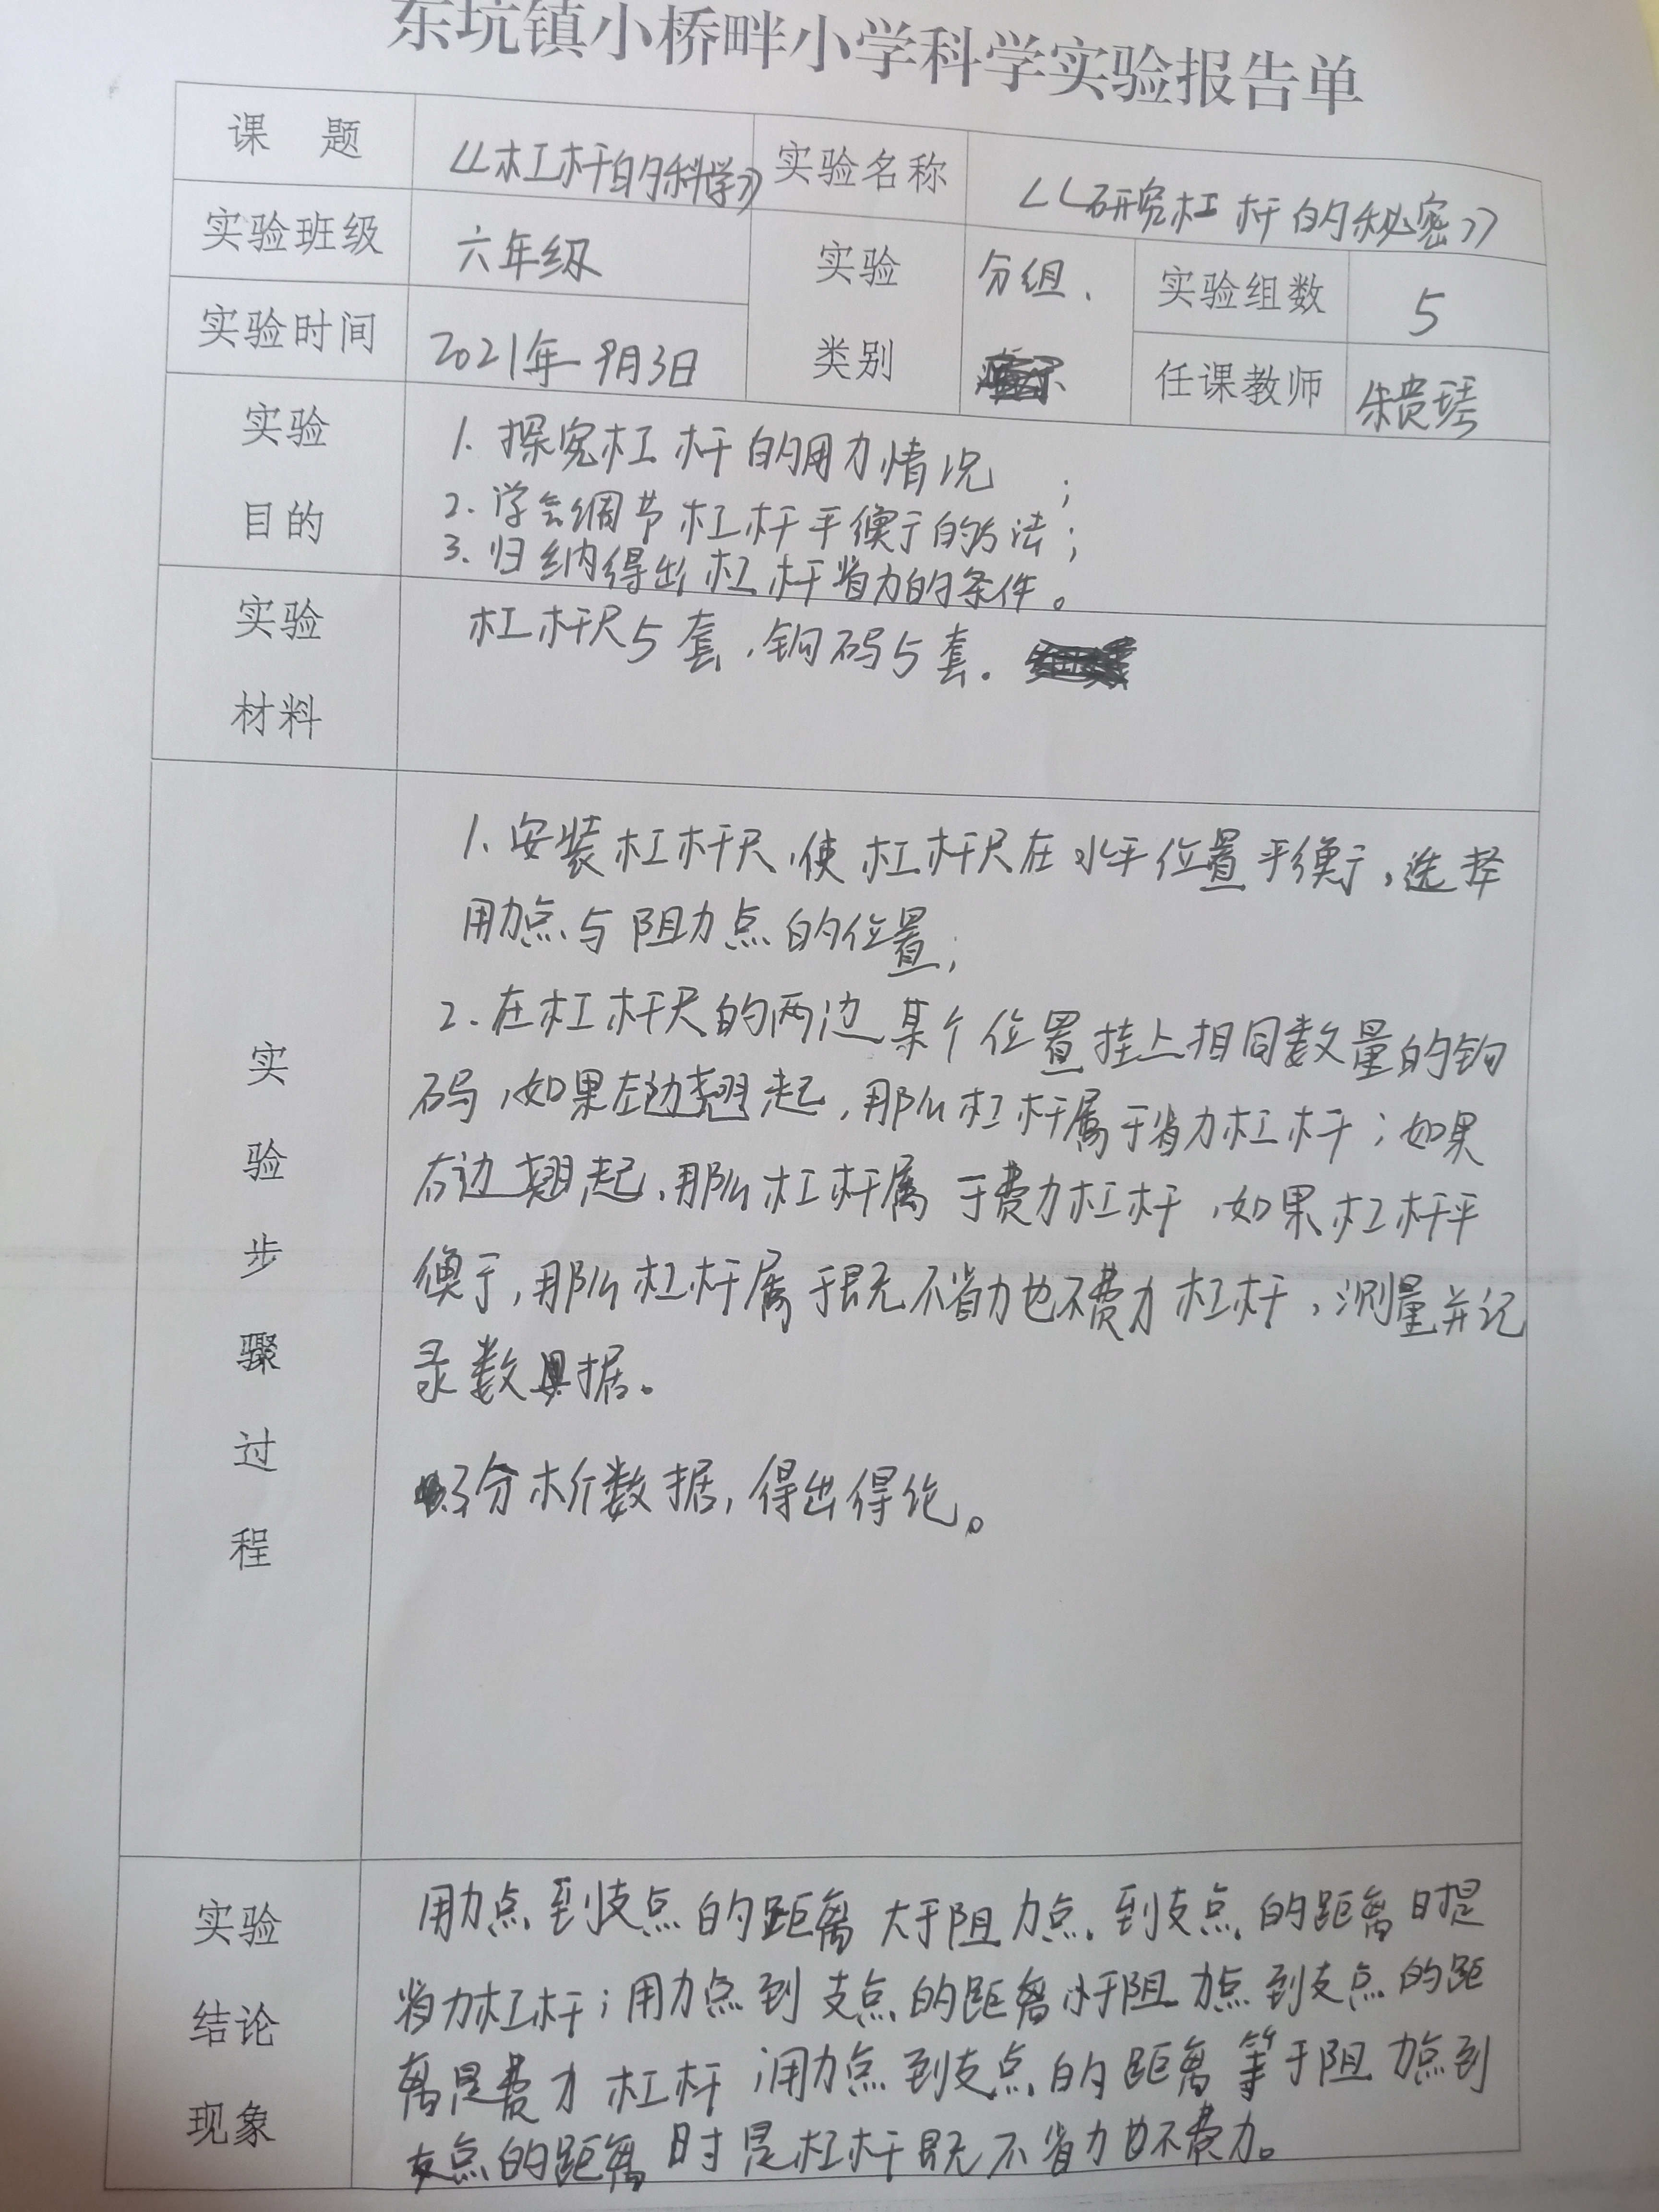 东坑镇小桥畔小学科学实验报告单
课 题 《杠杆的科学》 实验名称 《研究杠杆的秘密》
实验班级 六年级 实验类别 分组、 实验组数 5
实验时间 2021年9月3日 任课教师 朱贵琴
实验目的
1. 探究杠杆的用力情况；
2. 学会调节杠杆平衡的方法；
3. 归纳得出杠杆省力的条件。
实验材料
杠杆尺5套，钩码5套.
实验步骤过程
1. 安装杠杆尺，使杠杆尺在水平位置平衡，选择
用力点与阻力点的位置；
2. 在杠杆尺的两边某个位置挂上相同数量的钩
码，如果左边翘起，那么杠杆属于省力杠杆；如果
右边翘起，那么杠杆属于费力杠杆，如果杠杆平
衡，那么杠杆属于既不省力也不费力杠杆，测量并记
录数据。
3分析数据，得出得论。
实验结论现象
用力点到支点的距离大于阻力点到支点的距离时是
省力杠杆；用力点到支点的距离小于阻力点到支点的距
离是费力杠杆；用力点到支点的距离等于阻力点到
支点的距离时是杠杆既不省力也不费力。